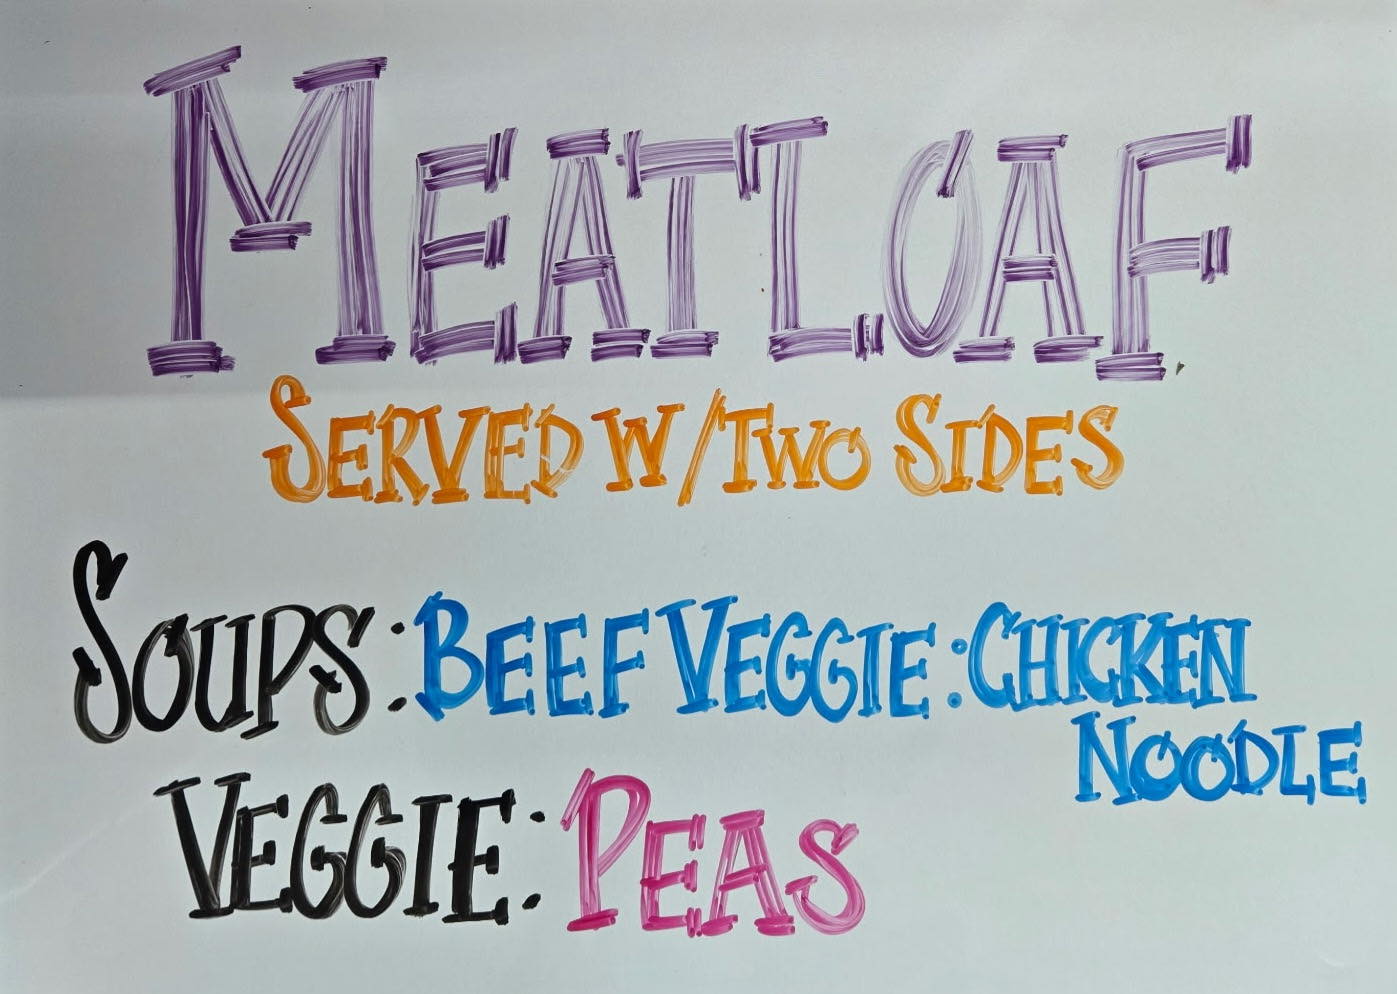 MEATLOAF
SERVED W/TWO SIDES
SOUPS: BEEF VEGGIE: CHICKEN
NOODLE
VEGGIE: PEAS